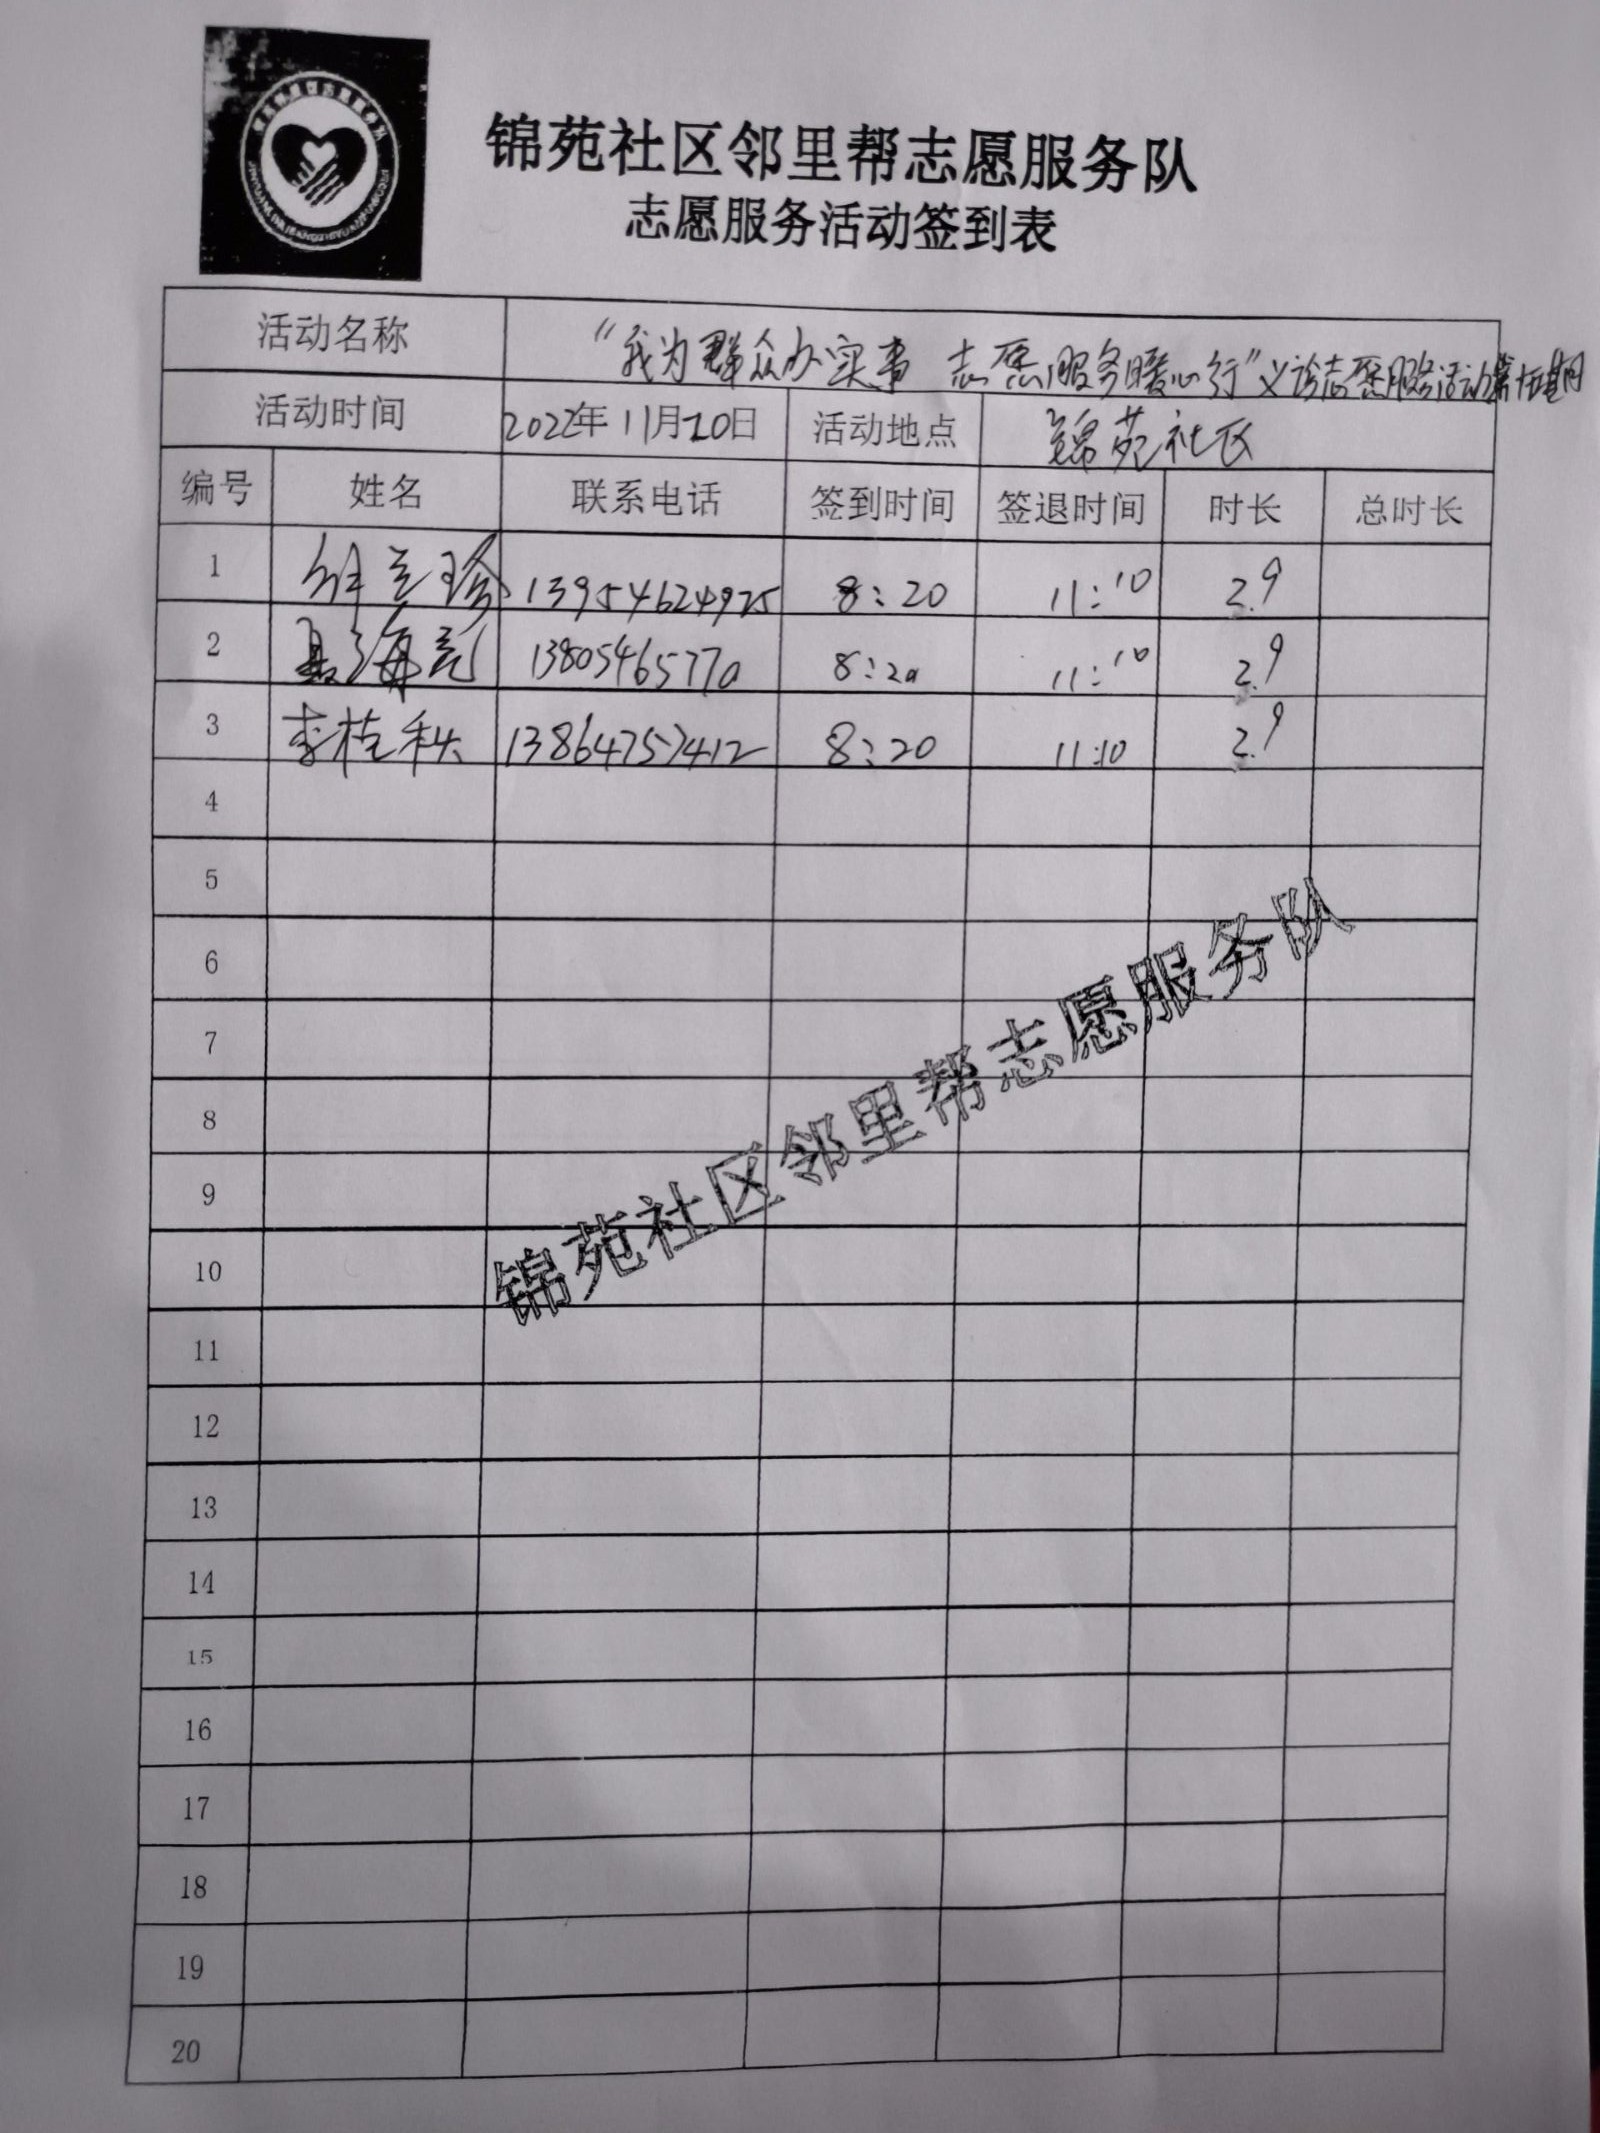 锦苑社区邻里帮志愿服务队
志愿服务活动签到表
活动名称 “我为群众办实事 志愿服务暖心行”义诊志愿服务活动第十五期
活动时间 2022年11月20日 活动地点 锦苑社区
编号 姓名 联系电话 签到时间 签退时间 时长 总时长
1 13954624925 8:20 11:10 2.9
2 聂海亮 13805465770 8:20 11:10 2.9
3 李桂秋 13864757412 8:20 11:10 2.9
4
5
6
7
8
9
10
11
12
13
14
15
16
17
18
19
20
锦苑社区邻里帮志愿服务队